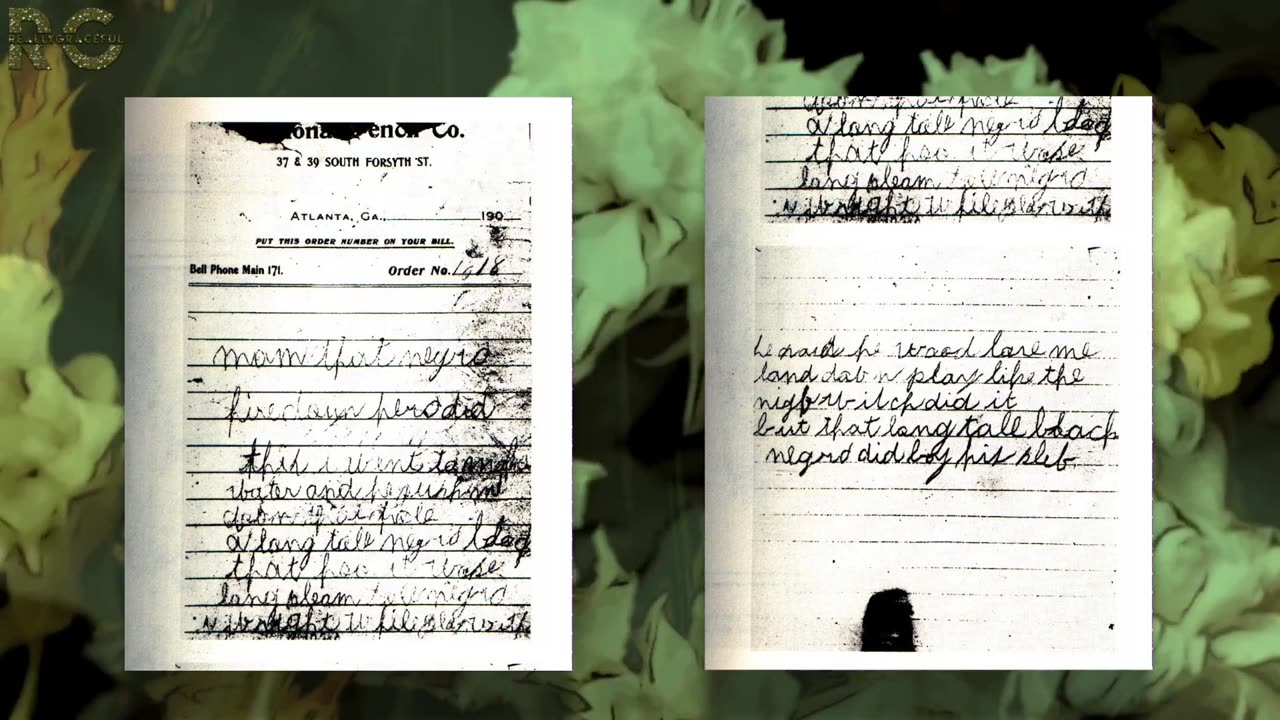 RG
REALLYGRACEFUL
Co.
37 & 39 SOUTH FORSYTH ST.
ATLANTA, GA., 190
PUT THIS ORDER NUMBER ON YOUR BILL.
Bell Phone Main 171. Order No. 1918
mam that negro
hire down here did
this i went to
water and he push me
down that hole
a long tall negro black
that hoo it wase
long sleam tall negro
i wright while play with
a long tall negro black
that hoo it wase
long sleam tall negro
i wright while play with
he said he wood love me
land dab n play like the
night witch did it
but that long tall black
negro did boy his slef